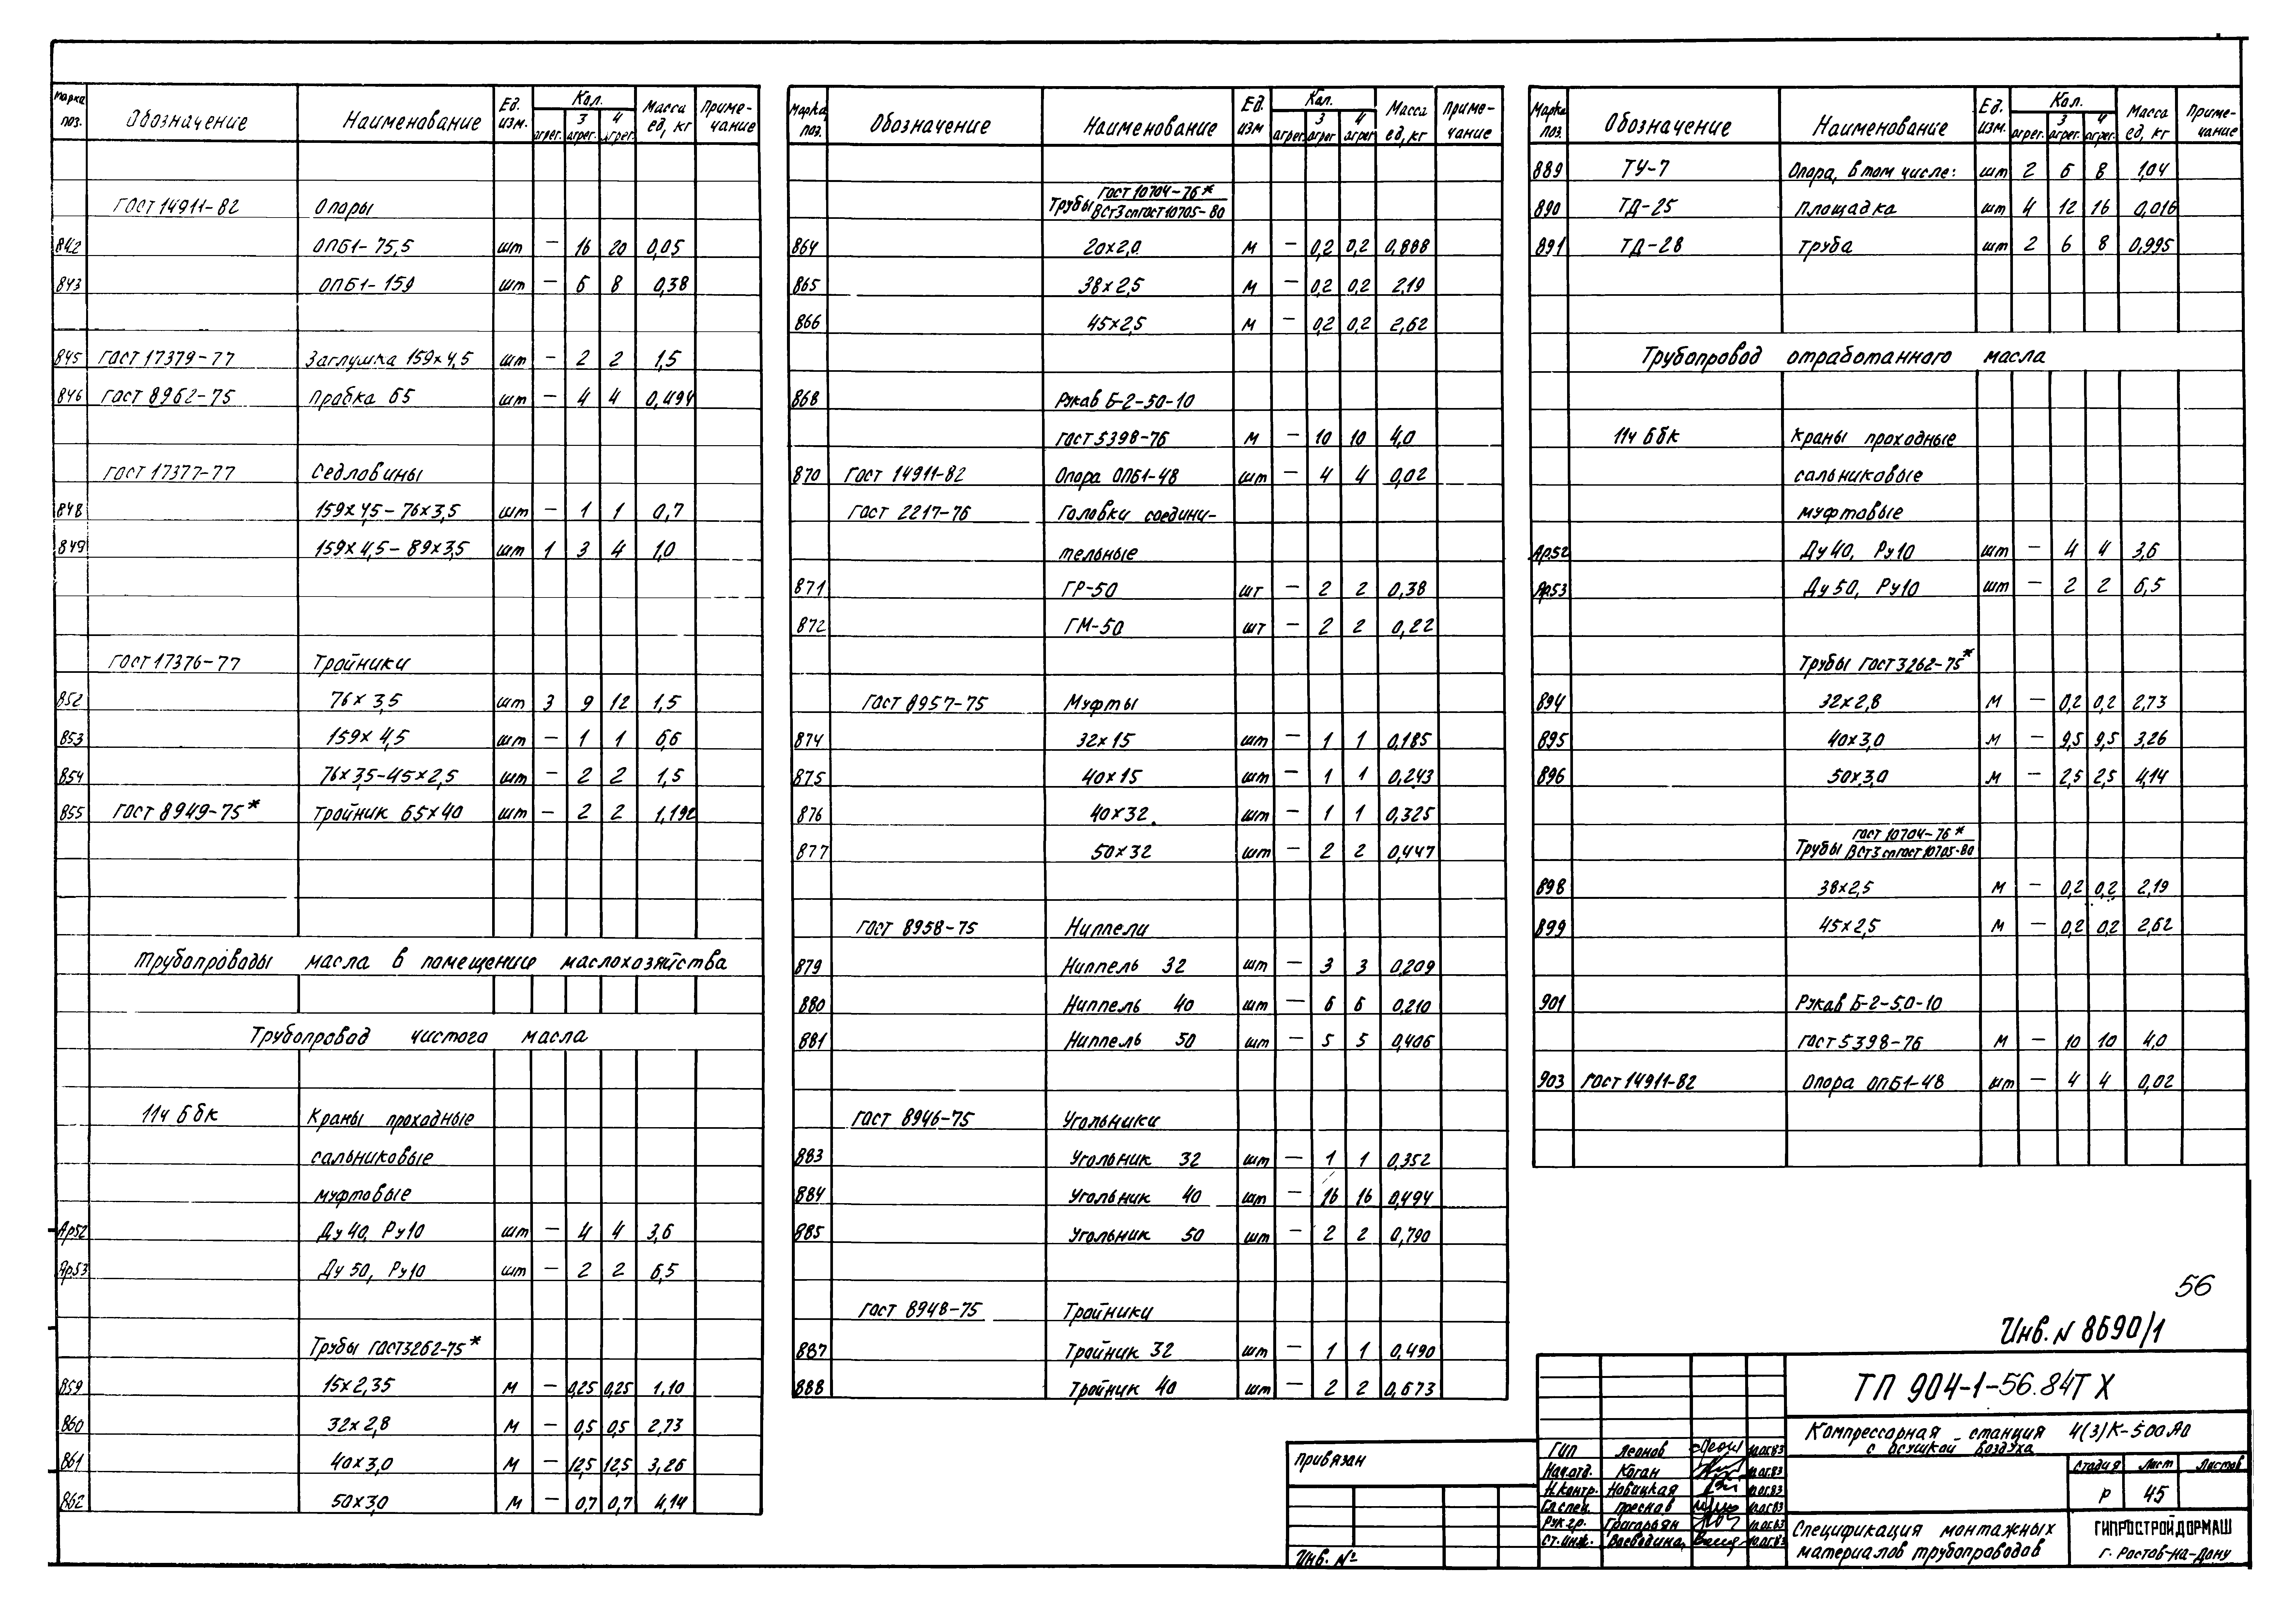 Марка поз. Обозначение Наименование Ед. изм. Кол. агрег. 3 агрег. 4 агрег. Масса ед, кг Приме-чание
ГОСТ 14911-82 Опоры
842 ОПБ1-75,5 шт — 16 20 0,05
843 ОПБ1-159 шт — 6 8 0,38
845 ГОСТ 17379-77 Заглушка 159×4,5 шт — 2 2 1,5
846 ГОСТ 8962-75 Пробка 65 шт — 4 4 0,494
ГОСТ 17377-77 Седловины
848 159×4,5-76×3,5 шт — 1 1 0,7
849 159×4,5-89×3,5 шт 1 3 4 1,0
ГОСТ 17376-77 Тройники
852 76×3,5 шт 3 9 12 1,5
853 159×4,5 шт — 1 1 6,6
854 76×3,5-45×2,5 шт — 2 2 1,5
855 ГОСТ 8949-75* Тройник 65×40 шт — 2 2 1,192
Трубопроводы масла в помещение маслохозяйства
Трубопровод чистого масла
11ч 6бк Краны проходные
сальниковые
муфтовые
Ар52 Ду 40, Ру10 шт — 4 4 3,6
Ар53 Ду 50, Ру10 шт — 2 2 6,5
Трубы ГОСТ3262-75*
859 15×2,35 М — 0,25 0,25 1,10
860 32×2,8 М — 0,5 0,5 2,73
861 40×3,0 М — 12,5 12,5 3,26
862 50×3,0 М — 0,7 0,7 4,14
Марка поз. Обозначение Наименование Ед. изм Кол. агрег. 3 агрег 4 агрег Масса ед, кг Приме-чание
Трубы ГОСТ 10704-76* / ВСт3сп ГОСТ 10705-80
864 20×2,0 М — 0,2 0,2 0,888
865 38×2,5 М — 0,2 0,2 2,19
866 45×2,5 М — 0,2 0,2 2,62
868 Рукав Б-2-50-10
ГОСТ 5398-76 М — 10 10 4,0
870 ГОСТ 14911-82 Опора ОПБ1-48 шт — 4 4 0,02
ГОСТ 2217-76 Головки соедини-
тельные
871 ГР-50 шт — 2 2 0,38
872 ГМ-50 шт — 2 2 0,22
ГОСТ 8957-75 Муфты
874 32×15 шт — 1 1 0,185
875 40×15 шт — 1 1 0,243
876 40×32 шт — 1 1 0,325
877 50×32 шт — 2 2 0,447
ГОСТ 8958-75 Ниппели
879 Ниппель 32 шт — 3 3 0,209
880 Ниппель 40 шт — 6 6 0,210
881 Ниппель 50 шт — 5 5 0,406
ГОСТ 8946-75 Угольники
883 Угольник 32 шт — 1 1 0,352
884 Угольник 40 шт — 16 16 0,494
885 Угольник 50 шт — 2 2 0,790
ГОСТ 8948-75 Тройники
887 Тройник 32 шт — 1 1 0,490
888 Тройник 40 шт — 2 2 0,673
Марка поз. Обозначение Наименование Ед. изм. Кол. агрег. 3 агрег. 4 агрег. Масса ед, кг Приме-чание
889 ТУ-7 Опора, в том числе: шт 2 6 8 1,04
890 ТД-25 площадка шт 4 12 16 0,016
891 ТД-28 труба шт 2 6 8 0,995
Трубопровод отработанного масла
11ч 6бк Краны проходные
сальниковые
муфтовые
Ар52 Ду 40, Ру10 шт — 4 4 3,6
Ар53 Ду 50, Ру10 шт — 2 2 6,5
Трубы ГОСТ 3262-75*
894 32×2,8 М — 0,2 0,2 2,73
895 40×3,0 М — 9,5 9,5 3,26
896 50×3,0 М — 2,5 2,5 4,14
Трубы ГОСТ 10704-76* / ВСт3сп ГОСТ 10705-80
898 38×2,5 М — 0,2 0,2 2,19
899 45×2,5 М — 0,2 0,2 2,62
901 Рукав Б-2-50-10
ГОСТ 5398-76 М — 10 10 4,0
903 ГОСТ 14911-82 Опора ОПБ1-48 шт — 4 4 0,02
56
Инв. N 8690/1
Привязан
Инв. №
ГИП Леонов 10.05.83
Нач.отд. Коган 10.05.83
Н.контр. Новицкая 10.05.83
Гл.спец. Преснов 10.05.83
Рук.гр. Григорьян 10.05.83
Ст.инж. Воеводина 10.05.83
ТП 904-1-56.84ТХ
Компрессорная станция 4(3)К-500АО
с осушкой воздуха
Стадия Лист Листов
Р 45
Спецификация монтажных
материалов трубопроводов
ГИПРОСТРОЙДОРМАШ
г. Ростов-на-Дону